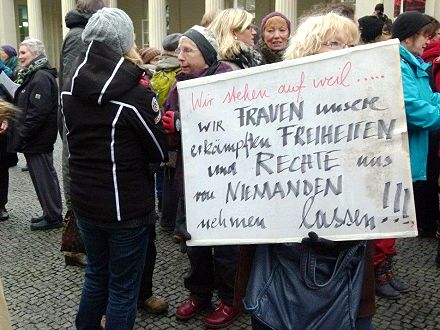 Wir stehen auf weil ....
WIR FRAUEN unsere
erkämpften FREIHEITEN
und RECHTE uns
von NIEMANDEN
nehmen lassen!!!